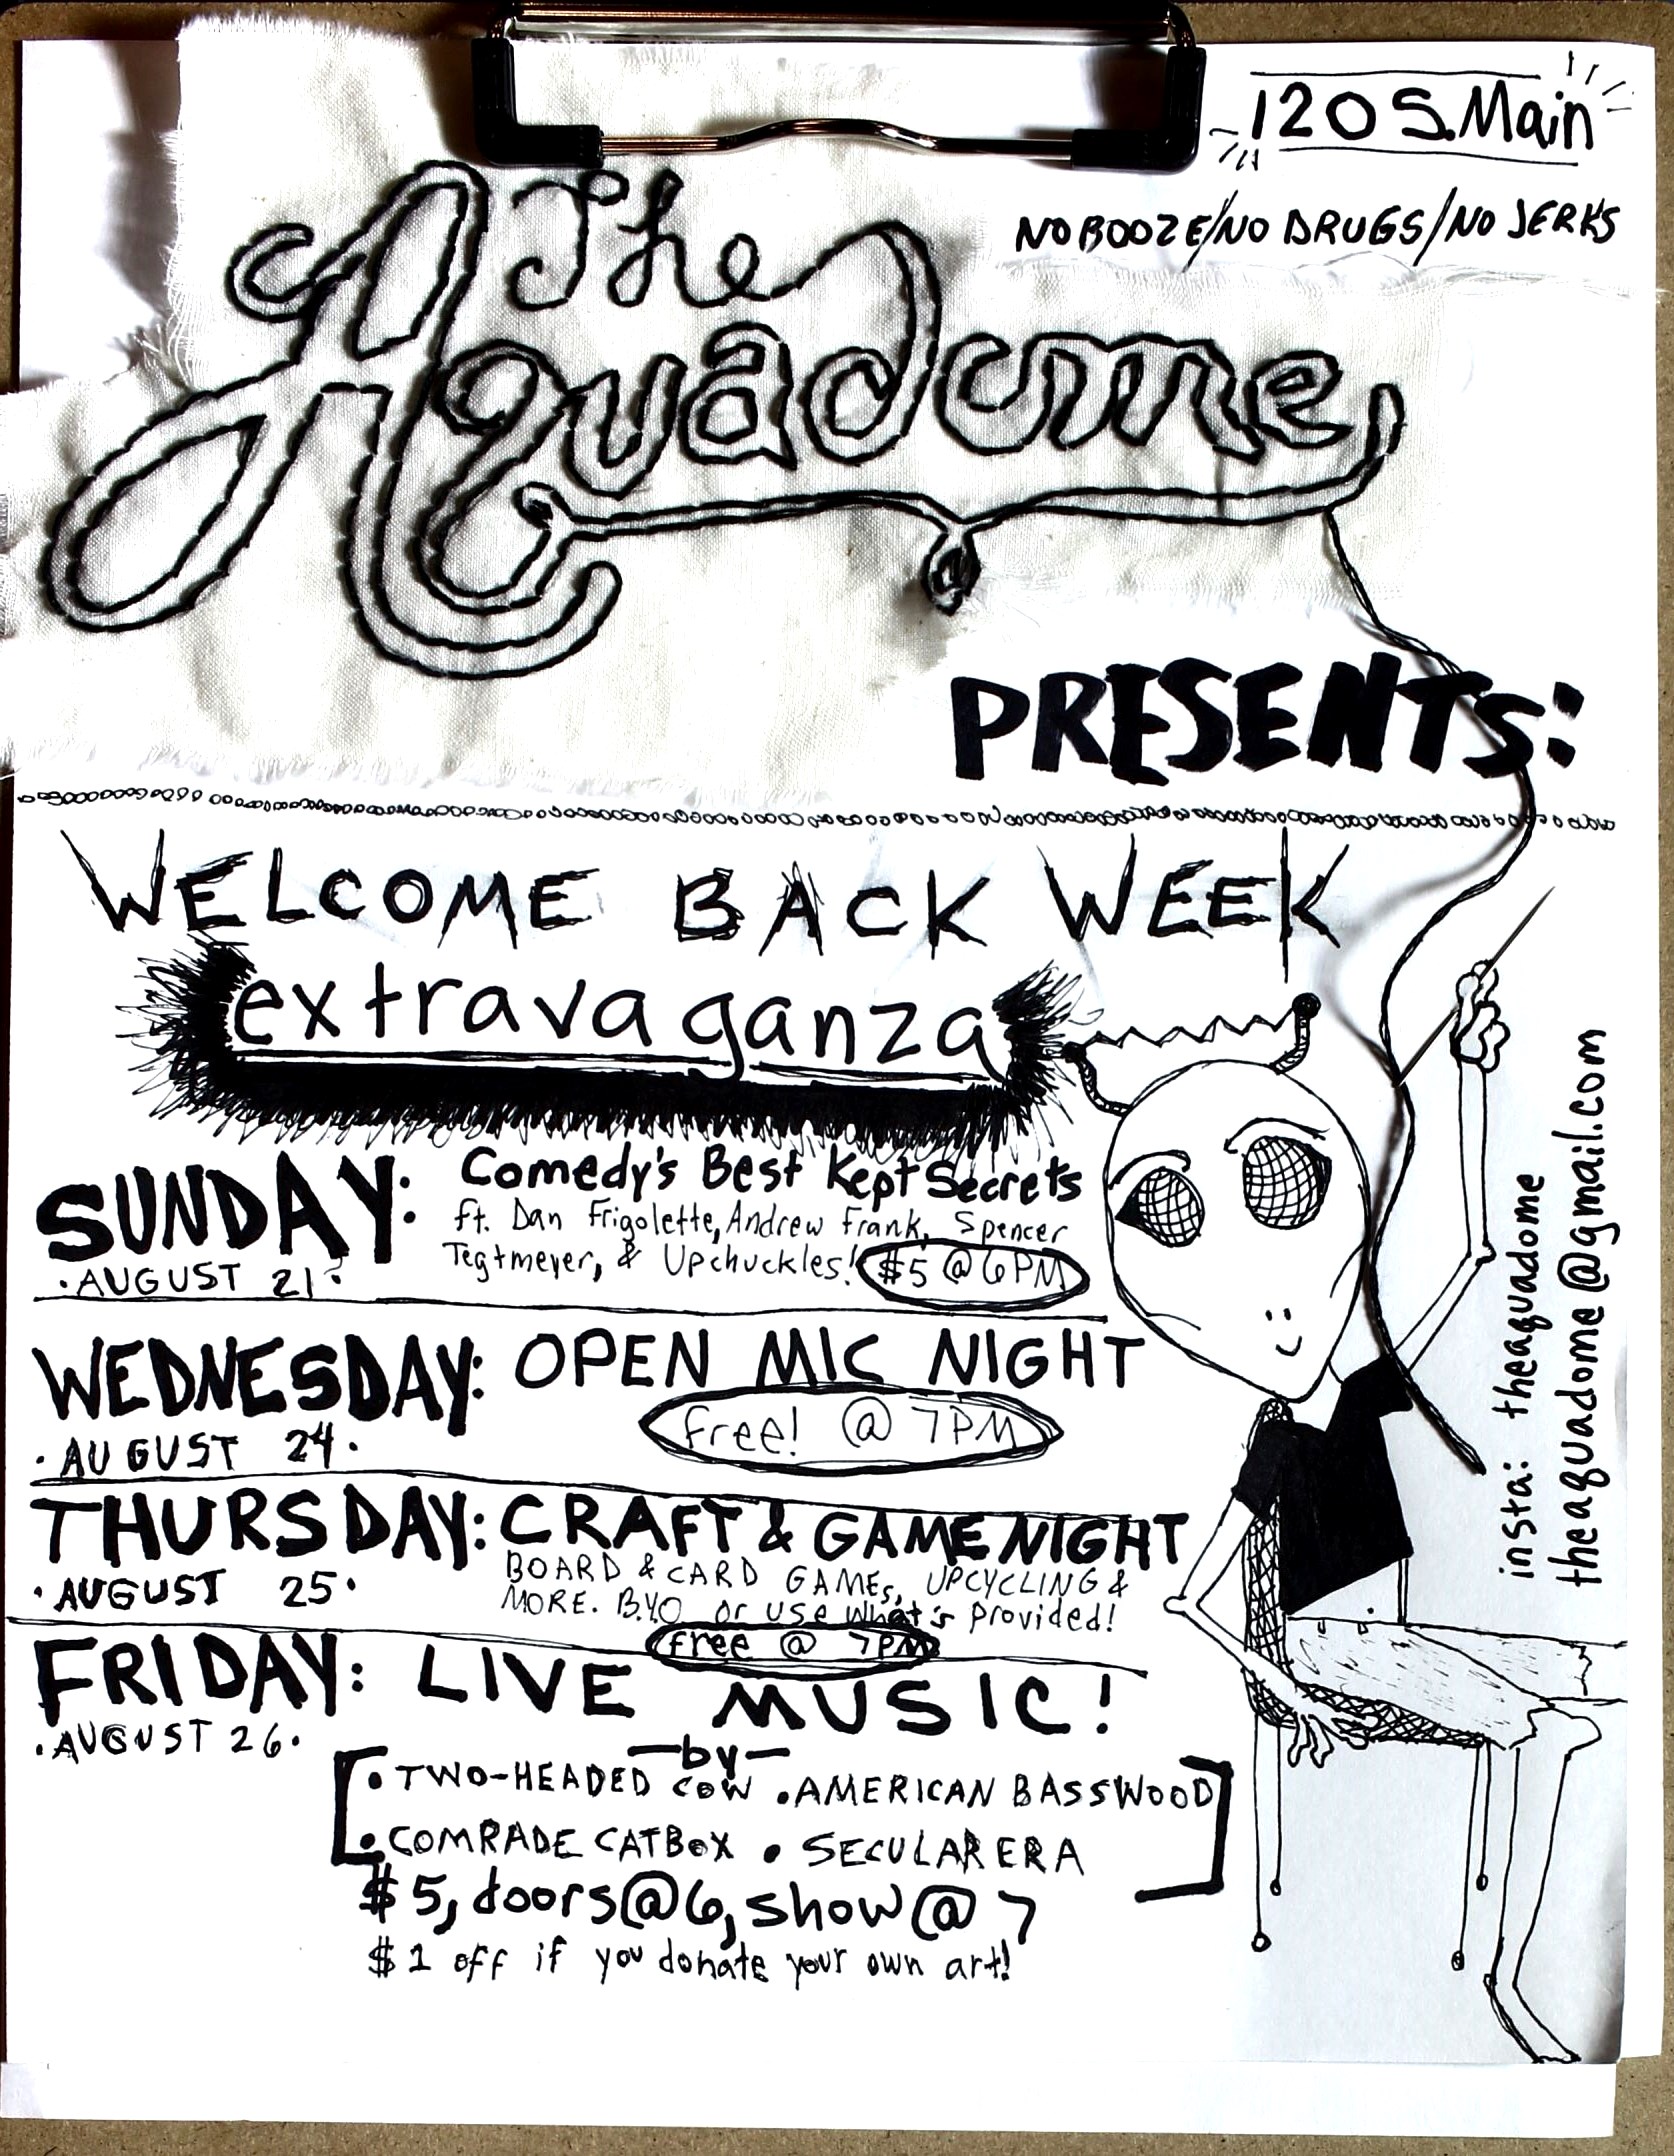 120 S. Main
NO BOOZE/NO DRUGS/NO JERKS
The
Aquadome
PRESENTS:
WELCOME BACK WEEK
extravaganza
SUNDAY:
·AUGUST 21·
Comedy's Best Kept Secrets
ft. Dan Frigolette, Andrew Frank, Spencer
Tegtmeyer, & Upchuckles! $5 @ 6PM
WEDNESDAY: OPEN MIC NIGHT
·AUGUST 24·
free! @ 7PM
THURSDAY: CRAFT & GAME NIGHT
·AUGUST 25·
BOARD & CARD GAMES, UPCYCLING &
MORE. B.Y.O. or use what's provided!
free @ 7PM
FRIDAY: LIVE MUSIC!
·AUGUST 26·
—by—
• TWO-HEADED COW • AMERICAN BASSWOOD
• COMRADE CATBOX • SECULAR ERA
$5, doors@6, show@7
$1 off if you donate your own art!
insta: theaquadome
theaquadome@gmail.com